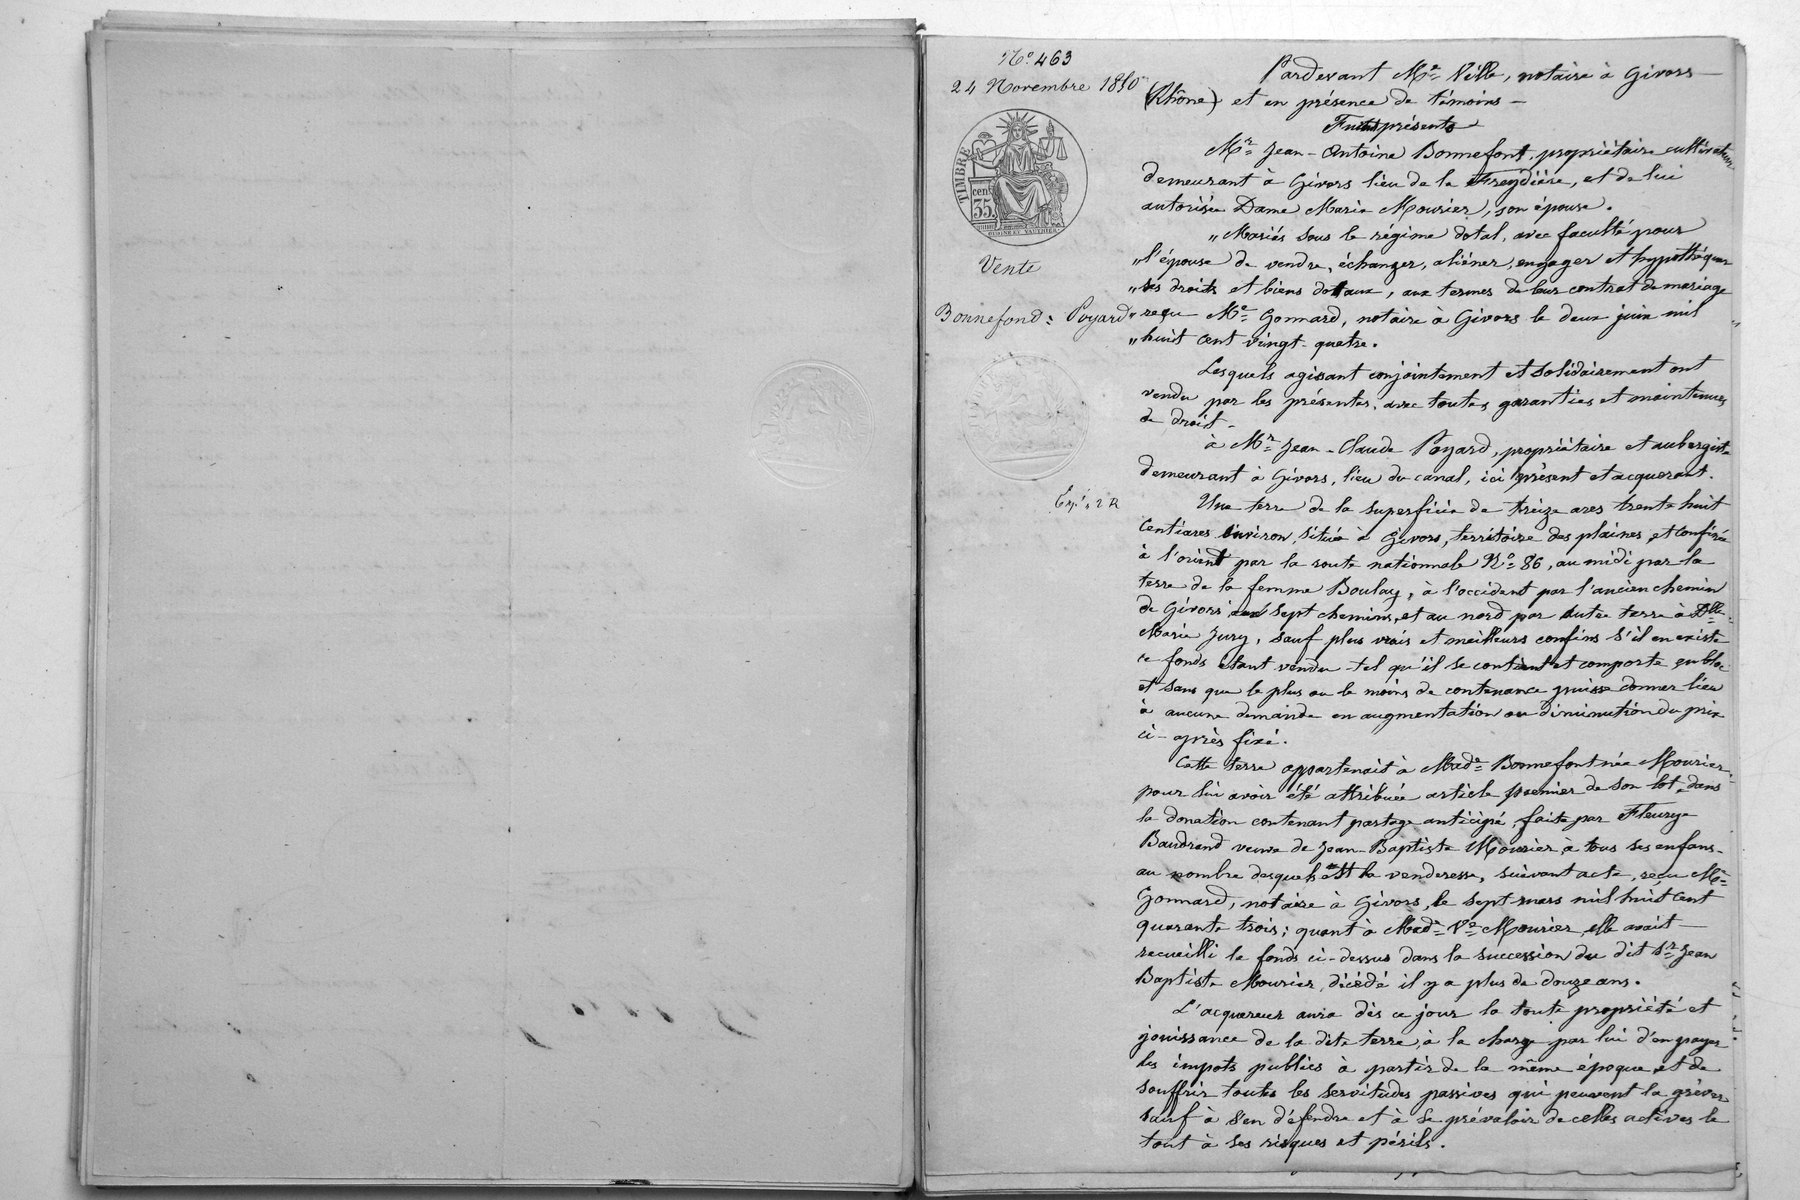 N° 463
24 Novembre 1850
TIMBRE
cent
35
Vente
Bonnefond = Poyard
Pardevant Me Ville, notaire à Givors
(Rhône) et en présence de témoins —
Furent présents
Mr Jean-Antoine Bonnefont, propriétaire cultivateur
demeurant à Givors lieu de la Freydière, et de lui
autorisée Dame Marie Mourier, son épouse.
„ Mariés sous le régime dotal, avec faculté pour
„ l'épouse de vendre, échanger, aliéner, engager et hypothéquer
„ ses droits et biens dotaux, aux termes de leur contrat de mariage
„ reçu Me Gonnard, notaire à Givors le deux juin mil
„ huit cent vingt-quatre.
Lesquels agissant conjointement et solidairement ont
vendu par les présentes, avec toutes garanties et maintenues
de droit -
à Mr Jean-Claude Poyard, propriétaire et aubergiste
demeurant à Givors, lieu du canal, ici présent et acquerant.
Une terre de la superficie de treize ares trente huit
centiares environ, située à Givors, territoire des plaines, et confinée
à l'orient par la route nationale N° 86, au midi par la
terre de la femme Boulay, à l'occident par l'ancien chemin
de Givors aux sept chemins, et au nord par autre terre à Dlle
Marie Jury, sauf plus vrais et meilleurs confins s'il en existe
ce fonds étant vendu tel qu'il se contient et comporte en bloc
et sans que le plus ou le moins de contenance puisse donner lieu
à aucune demande en augmentation ou diminution du prix
ci-après fixé.
Cette terre appartenait à Made Bonnefont née Mourier
pour lui avoir été attribuée article premier de son lot, dans
la donation contenant partage anticipé, faite par Fleurye
Baudrand veuve de Jean-Baptiste Mourier, à tous ses enfans -
au nombre desquels est la venderesse, suivant acte, reçu Me
Gonnard, notaire à Givors, le sept mars mil huit cent
quarante trois; quant à Made Ve Mourier, elle avait —
recueilli le fonds ci-dessus dans la succession du dit Sr Jean
Baptiste Mourier, décédé il y a plus de douze ans.
L'acquereur aura dès ce jour la toute propriété et
jouissance de la dite terre, à la charge par lui d'en payer
les impots publics à partir de la même époque, et de
souffrir toutes les servitudes passives qui peuvent la gréver
sauf à s'en défendre et à se prévaloir de celles actives le
tout à ses risques et périls.